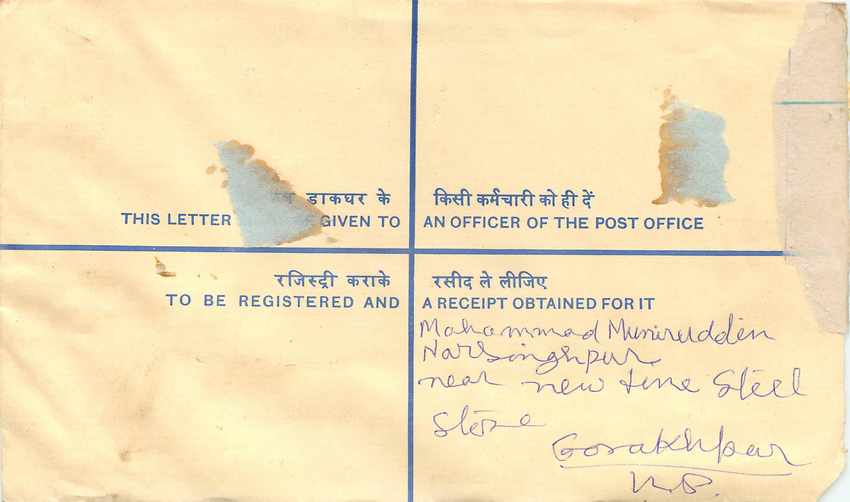 डाकघर के किसी कर्मचारी को ही दें
THIS LETTER GIVEN TO AN OFFICER OF THE POST OFFICE
रजिस्ट्री कराके रसीद ले लीजिए
TO BE REGISTERED AND A RECEIPT OBTAINED FOR IT
Mohammad Muniruddin
Narsinghpur
near new time Steel
Store
Gorakhpur
U.P.